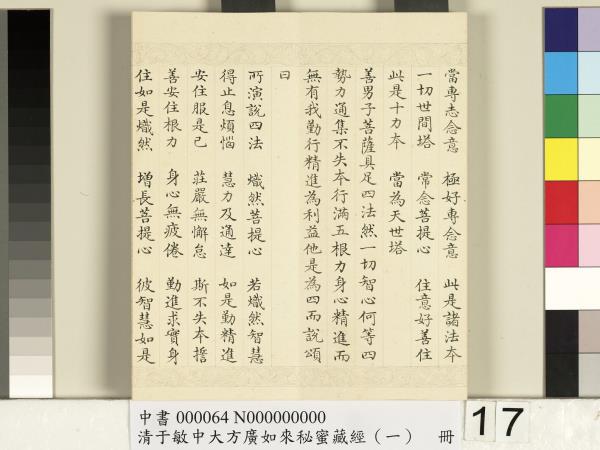 當專志念意　極好專念意　此是諸法本
一切世間塔　常念菩提心　住意好善住
此是十力本　當為天世塔
善男子菩薩具足四法然一切智心何等四
勢力通集不失本行滿五根力身心精進而
無有我勤行精進為利益他是為四而說頌
曰
所演說四法　熾然菩提心　若熾然智慧
得止息煩惱　慧力及通達　如是勤精進
安住服是己　莊嚴無懈怠　斯不失本誓
善安住根力　身心無疲倦　勤進求實身
住如是熾然　增長菩提心　彼智慧如是
中書 000064 N000000000
清于敏中大方廣如來秘蜜藏經（一）　冊
17